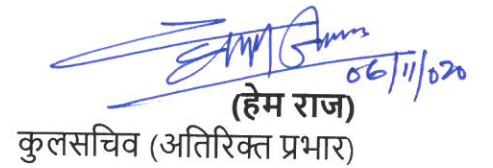 06/11/020
(हेम राज)
कुलसचिव (अतिरिक्त प्रभार)